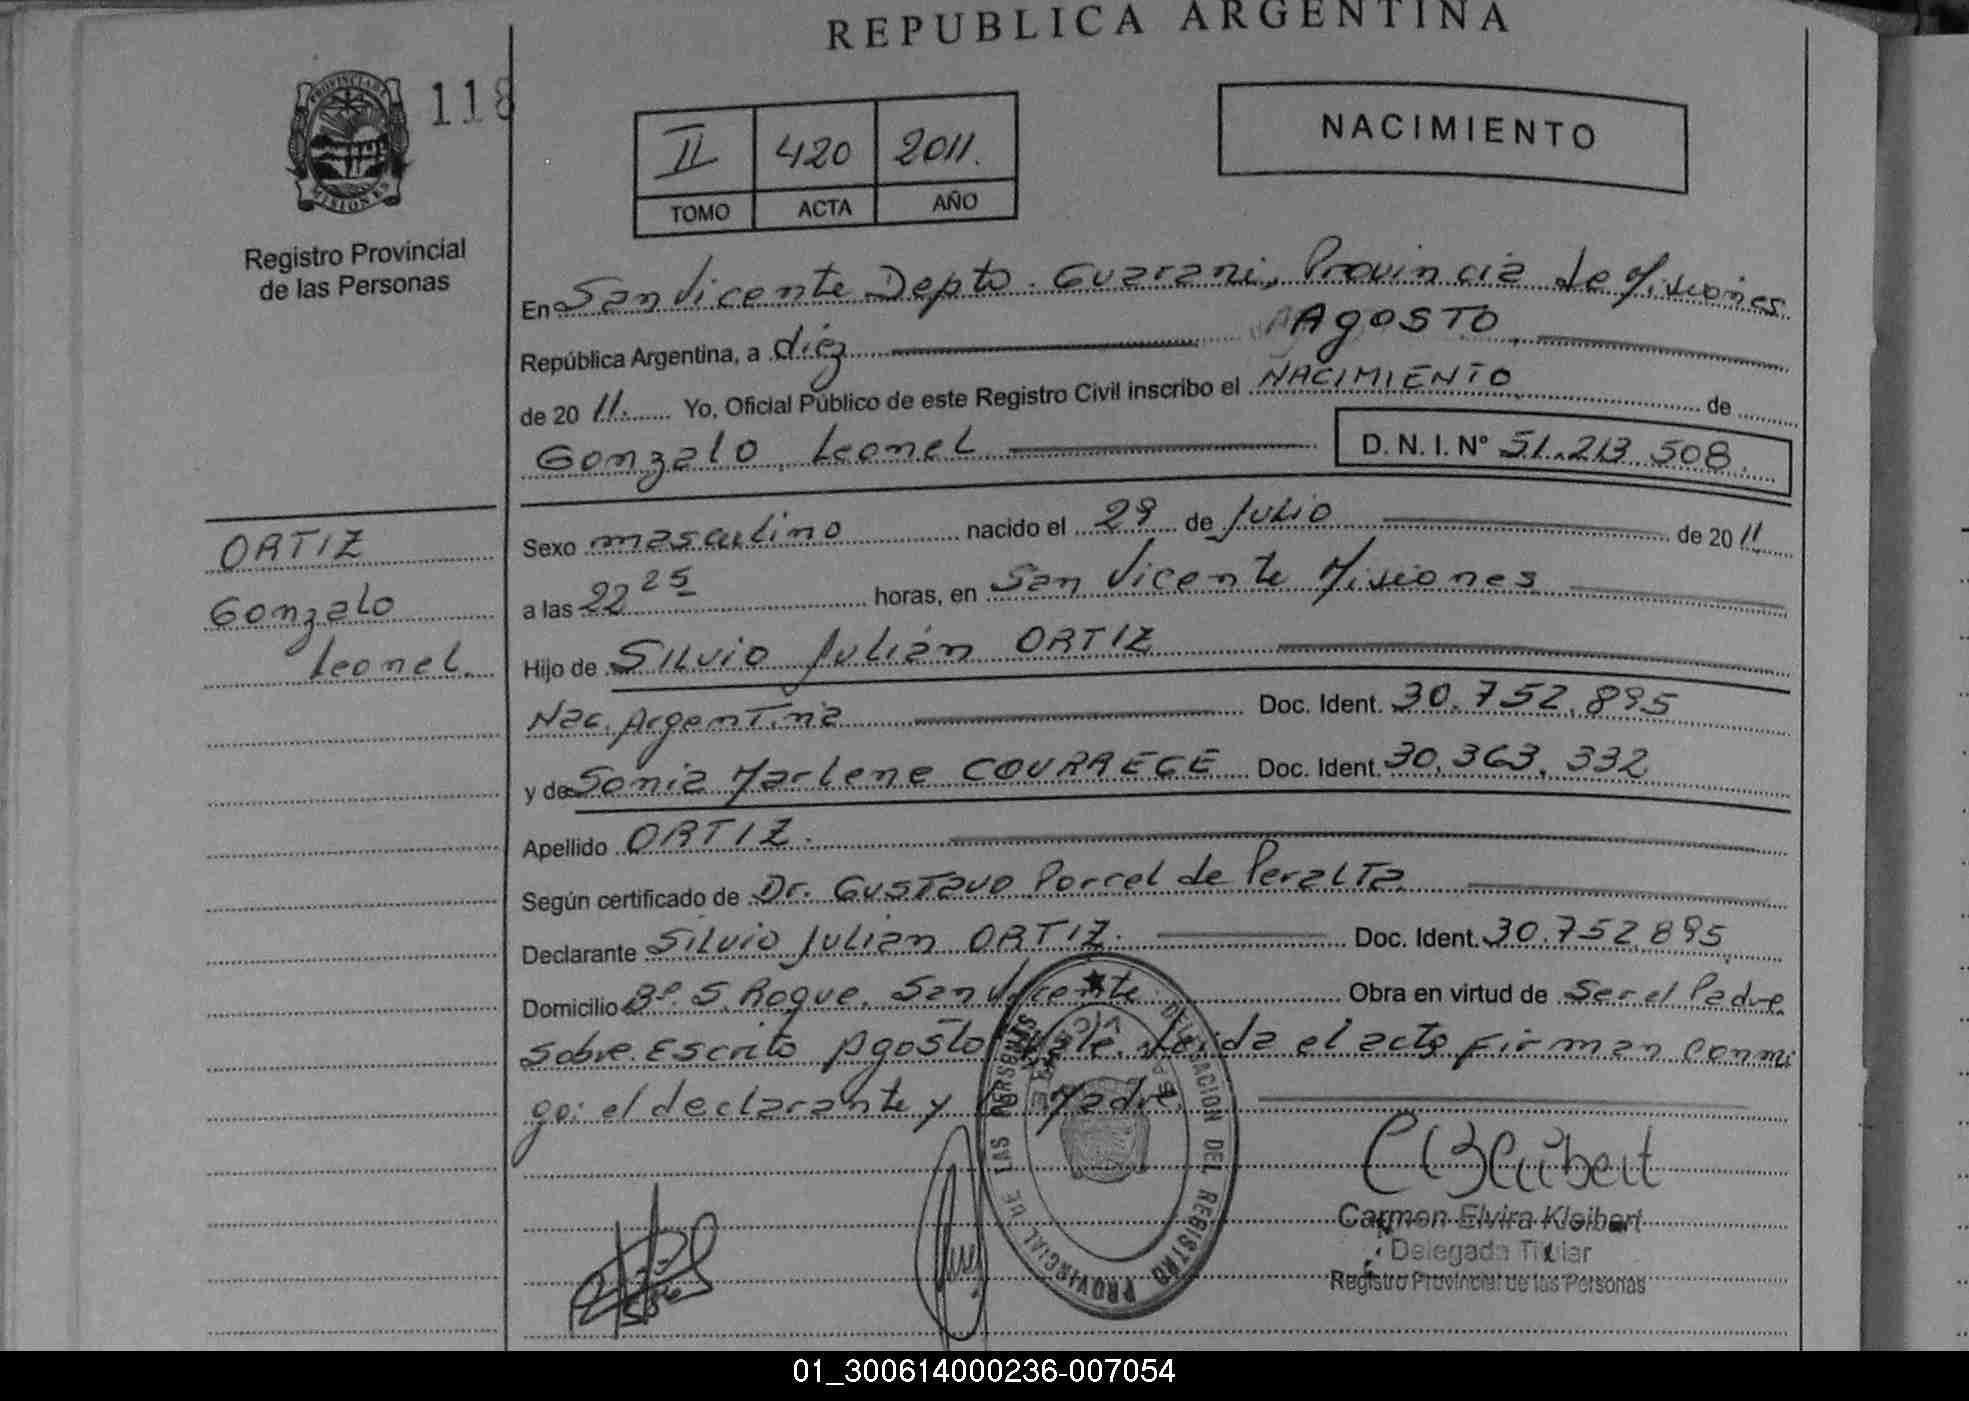 REPUBLICA ARGENTINA
PROVINCIA DE
MISIONES
118
Registro Provincial
de las Personas
II 420 2011.
TOMO ACTA AÑO
NACIMIENTO
En San Vicente Depto. Guarani, Provincia de Misiones
República Argentina, a diéz AGOSTO
de 20 11. Yo, Oficial Público de este Registro Civil inscribo el NACIMIENTO de
Gonzalo Leonel D. N. I. Nº 51.213.508.
ORTIZ
Gonzalo
Leonel.
Sexo masculino nacido el 29 de Julio de 20 11
a las 22 25 horas, en San Vicente Misiones
Hijo de Silvio Julián ORTIZ
Nac. Argentina Doc. Ident. 30.752.895
y de Sonia Marlene COURREGE Doc. Ident. 30.363.332
Apellido ORTIZ.
Según certificado de Dr. Gustavo Porcel de Peralta
Declarante Silvio Julián ORTIZ. Doc. Ident. 30.752.895
Domicilio Bº. S. Roque. San Vicente Obra en virtud de Ser el Padre
Sobre Escrito Agosto Vale. Leida el acta firman conmi
go: el declarante y la Madre.
DELEGACION DEL REGISTRO PROVINCIAL DE LAS PERSONAS
Carmen Elvira Kleibert
Delegada Titular
Registro Provincial de las Personas
01_300614000236-007054